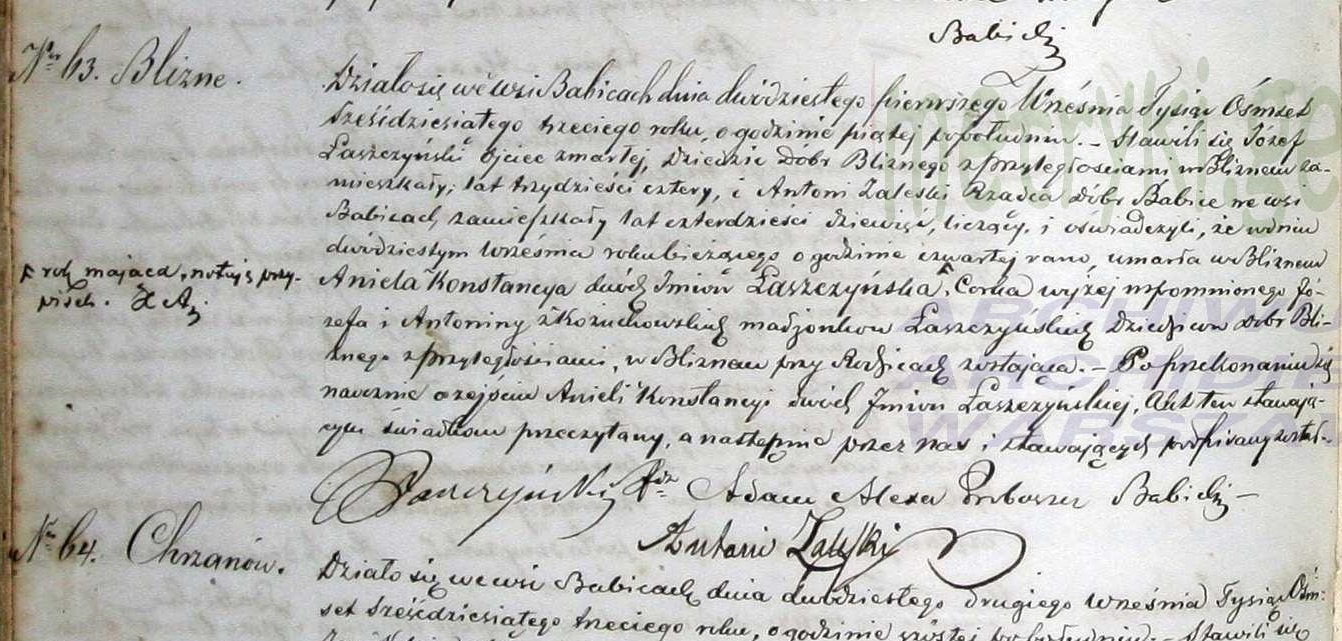 Babicki
Nr 63. Blizne.
Działo się we wsi Babicach dnia dwódziestego pierwszego Września Tysiąc Ośmset
Sześćdziesiątego trzeciego roku, o godzinie piątej popołudniu. – Stawili się Józef
Łaszczyński ojciec zmarłej, Dziedzic Dóbr Bliznego z przyległościami w Bliznem za-
mieszkały, lat trzydzieści cztery, i Antoni Zaleski Rządca Dóbr Babice we wsi
Babicach zamieszkały lat czterdzieści dziewięć, liczący, i oświadczyli, że w dniu
dwódziestym Września roku bieżącego o godzinie czwartej rano, umarła w Bliznem
Aniela Konstancya dwóch Imion Łaszczyńska, Córka wyżej wspomnionego Jó-
zefa i Antoniny z Kożuchowskich małżonków Łaszczyńskich Dziedziców Dóbr Bli-
znego z przyległościami, w Bliznem przy Rodzicach zostająca. – Po przekonaniu się
naocznie o zejściu Anieli Konstancyi dwóch Imion Łaszczyńskiej, Akt ten stawają-
cym świadkom przeczytany, a następnie przez nas i stawających podpisany został –
rok mająca, notuję przy-
pisek. X A
Łaszczyński Xdz Adam Alexa Proboszcz Babicki –
Antoni Zaleski
Nr 64. Chrzanów.
Działo się we wsi Babicach dnia dwódziestego drugiego Września Tysiąc Ośm-
set Sześćdziesiątego trzeciego roku, o godzinie szóstej po południu – Stawili się
ARCHIWUM
ARCHIDIE
WARSZA